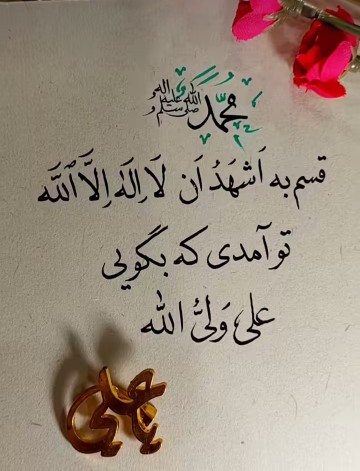 محمّد صلى الله عليه وآله وسلم
قسم به اَشهَدُ اَن لَا اِلٰهَ اِلَّا ٱللّٰه
تو آمدی که بگویی
علی وَلیُّ الله
علی